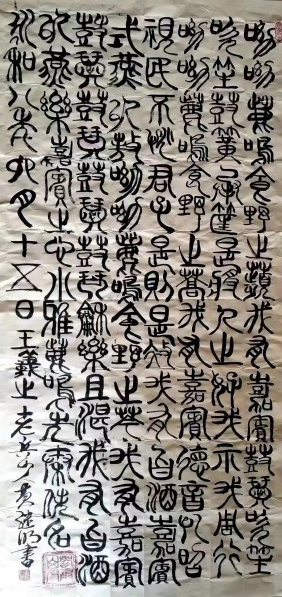 呦呦鹿鳴食野之蘋我有嘉賓鼓瑟吹笙
吹笙鼓簧承筐是將人之好我示我周行
呦呦鹿鳴食野之蒿我有嘉賓德音孔昭
視民不恌君子是則是效我有旨酒嘉賓
式燕以敖呦呦鹿鳴食野之芩我有嘉賓
鼓瑟鼓琴鼓瑟鼓琴龢樂且湛我有旨酒
以燕樂嘉賓之心小雅鹿鳴先秦佚名
永和八年卯月十五日王羲之書